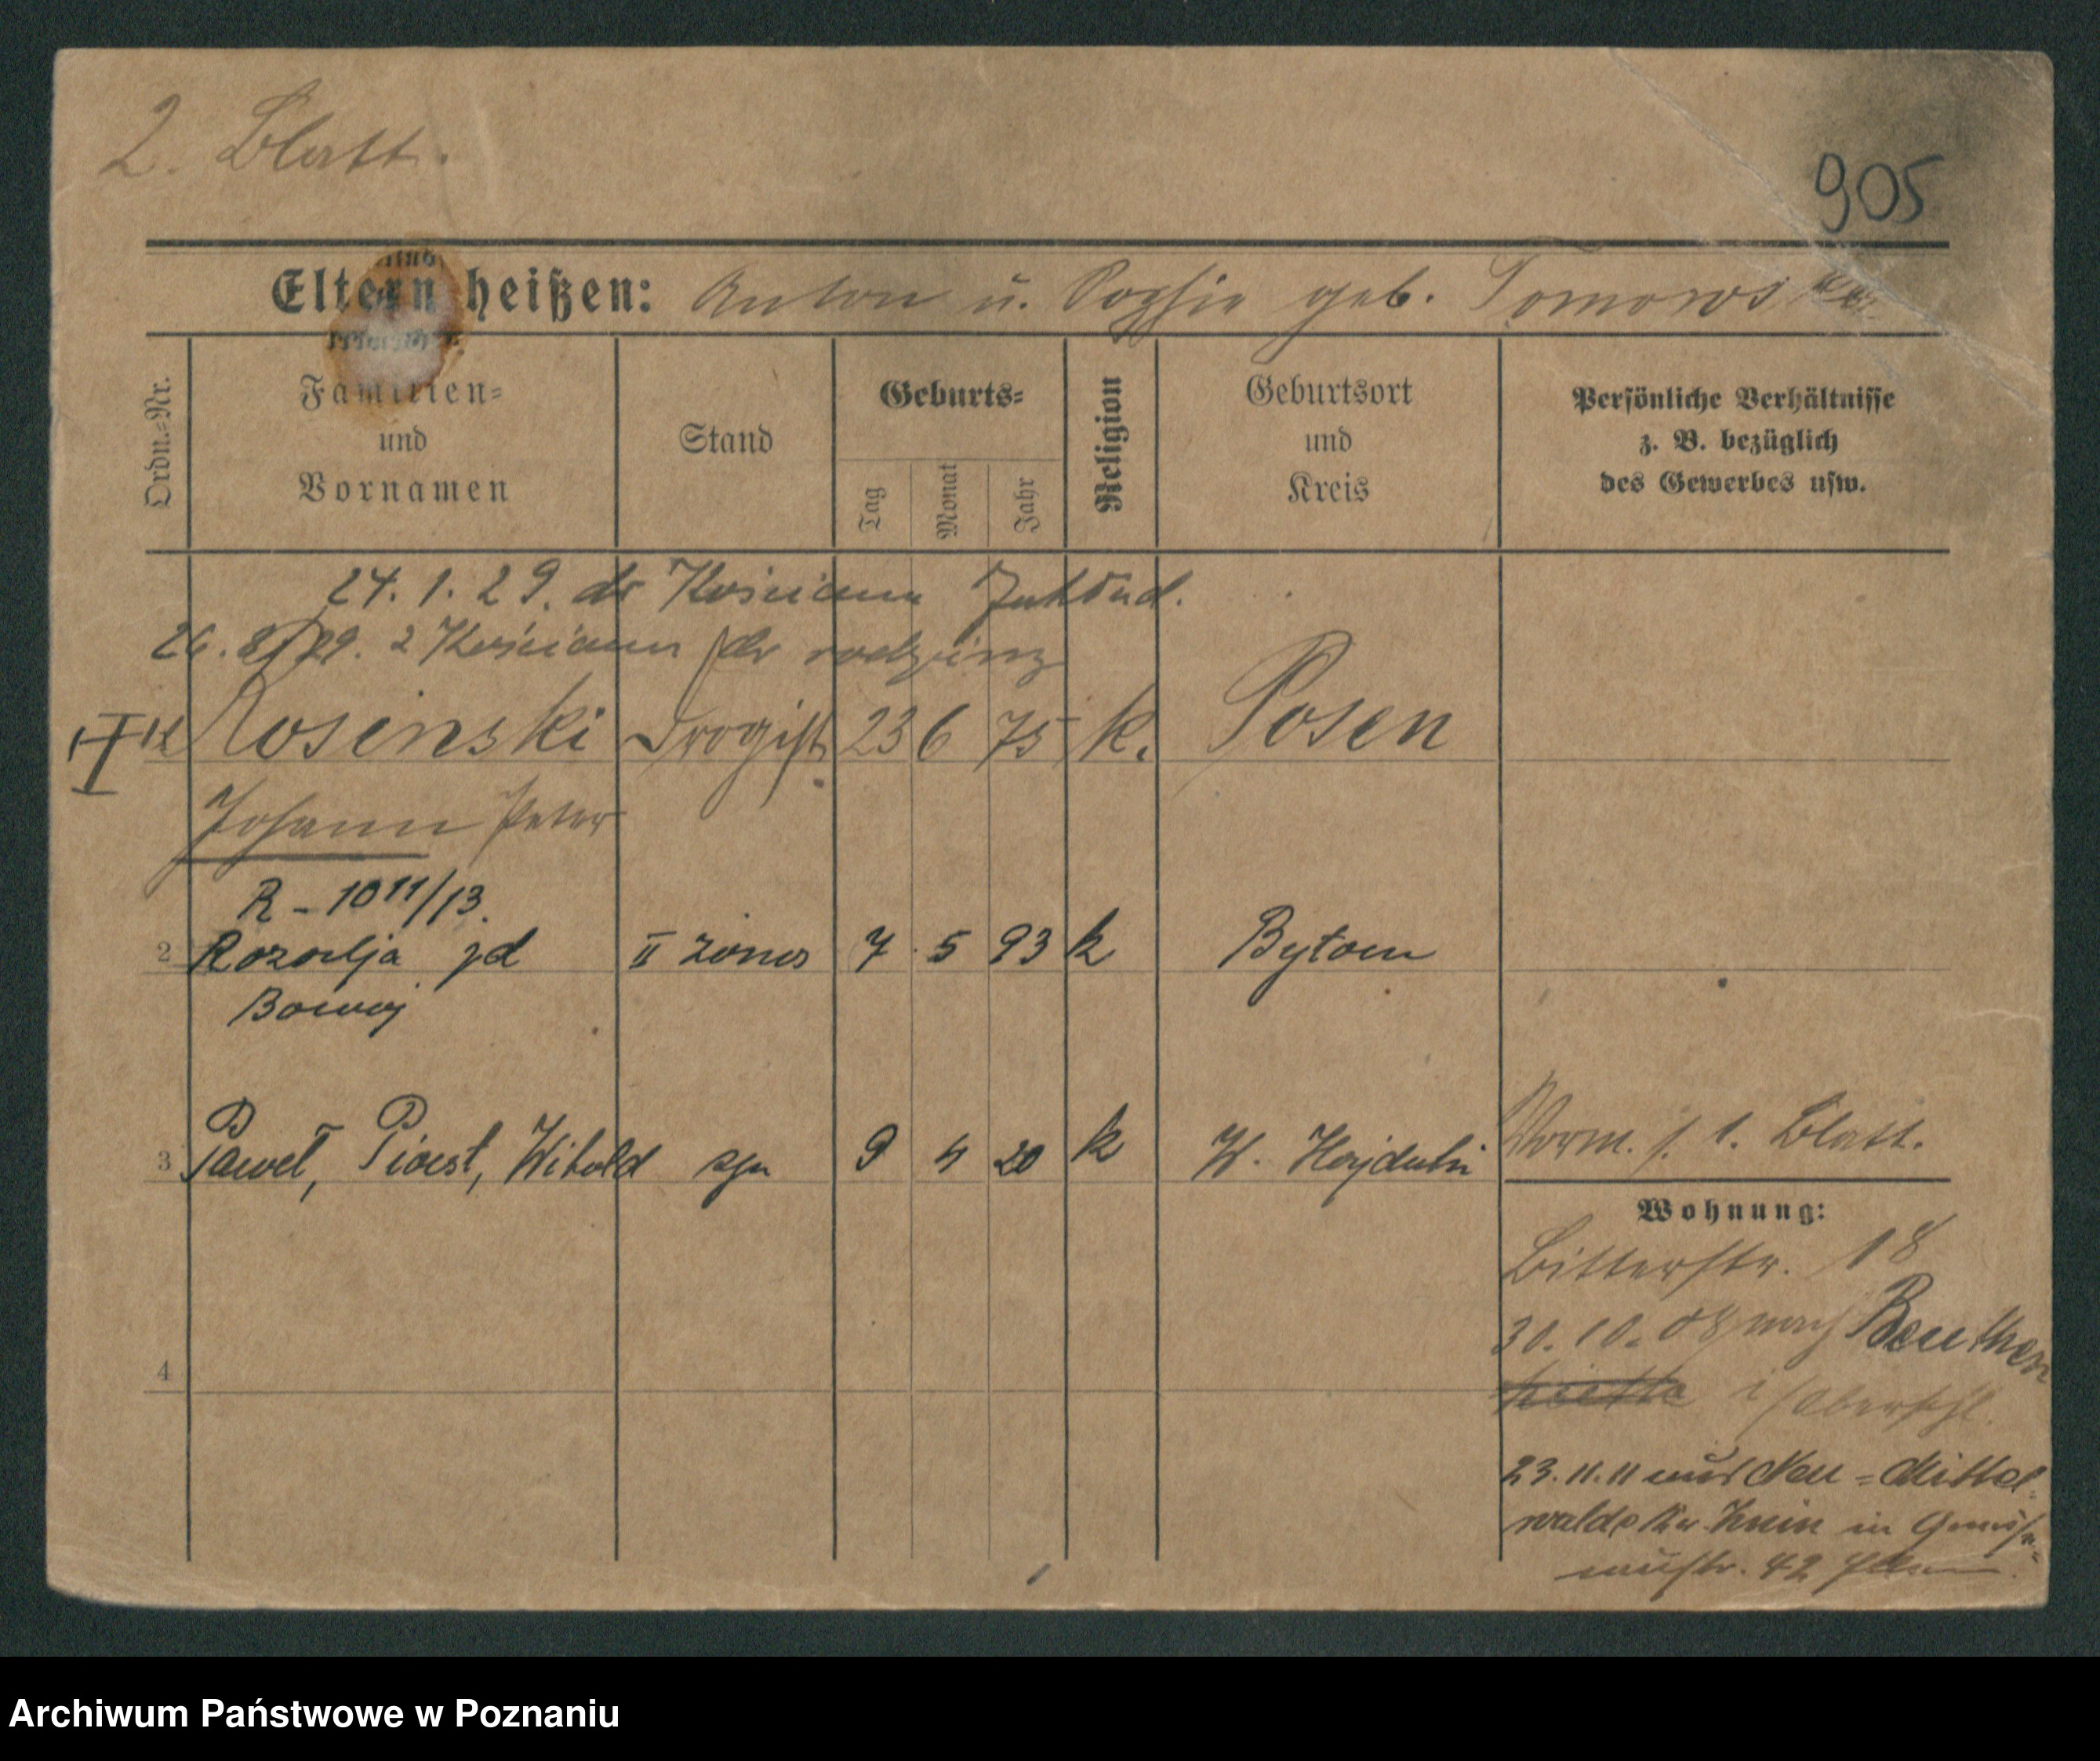 2. Blatt.
905
Eltern heißen: Anton u. Sophie geb. Tomowska
Ordn.=Nr.
Familien=
und
Vornamen
Stand
Geburts=
Tag
Monat
Jahr
Religion
Geburtsort
und
Kreis
Persönliche Verhältnisse
z. B. bezüglich
des Gewerbes usw.
24. 1. 29. do Kościana
26. 8/29. z Kościana do rodziny
Rosinski Drogist 23 6 75 k. Posen
Johann Peter
R - 10 11/13.
2 Rozalja zd II żona 7 5 93 k Bytom
3 Paweł, Piotr, Witold syn 9 4 20 k W. Hajduki
Vorm. s. 1. Blatt.
Wohnung:
Bitterstr. 18
30. 10. 08 nach Beuthen
i/Oberschl.
23. 11. 11 aus Neu=Mittel=
walde Kr. Znin in
42
4
Archiwum Państwowe w Poznaniu